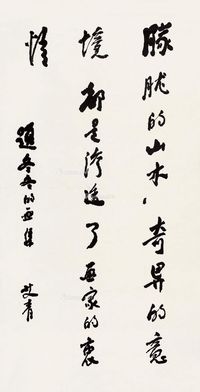 朦胧的山水，奇异的意
境都是渗透了画家的衷
情
题冬冬的画集
艾青